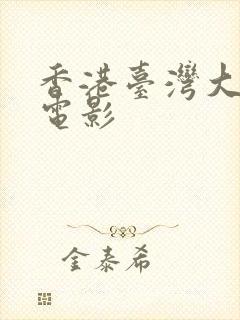 香港臺灣大
電影
金泰希